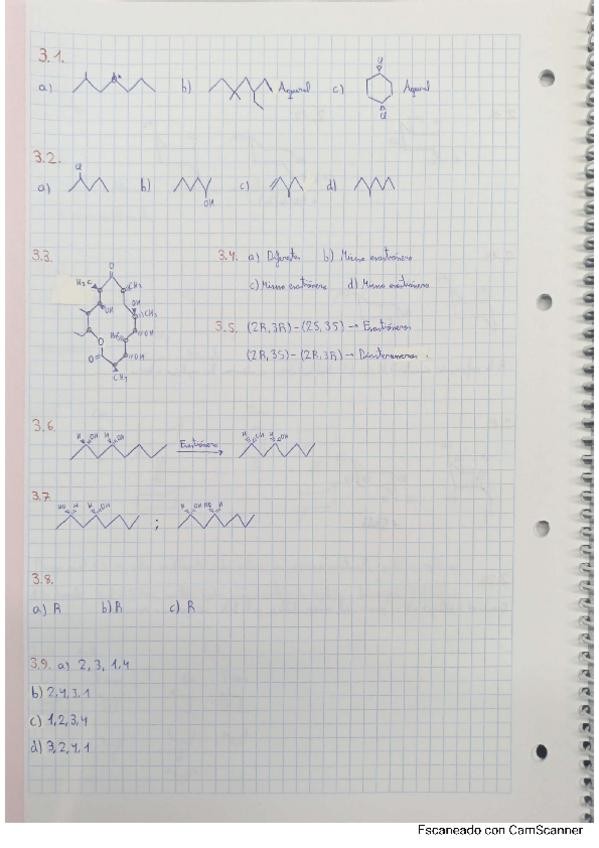 3.1.
a) b) Aquiral c) Aquiral
Cl
3.2.
Cl
a) b) c) d)
OH
3.3. 3.4. a) Diferentes b) Mismo enantiómero
c) Mismo enantiómero d) Mismo enantiómero
O
H₃C CH₃
OH OH
CH₃
OH
O
O OH
CH₃
3.5. (2R,3R)-(2S,3S) → Enantiómeros
(2R,3S)-(2R,3R) → Diastereómeros.
3.6.
H OH H OH Enantiómero H OH H OH
3.7.
HO H H OH ; H OH HO H
3.8.
a) R b) R c) R
3.9. a) 2, 3, 1, 4
b) 2, 4, 3, 1
c) 1, 2, 3, 4
d) 3, 2, 4, 1
Escaneado con CamScanner